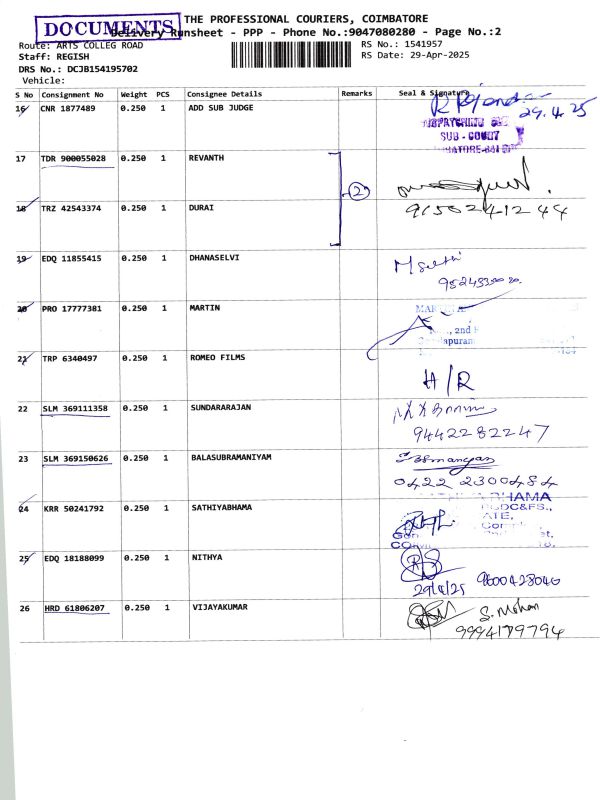 DOCUMENTS
THE PROFESSIONAL COURIERS, COIMBATORE
Delivery Runsheet - PPP - Phone No.:9047080280 - Page No.:2
Route: ARTS COLLEG ROAD
RS No.: 1541957
Staff: REGISH
RS Date: 29-Apr-2025
DRS No.: DCJB154195702
Vehicle:
S No Consignment No Weight PCS Consignee Details Remarks Seal & Signature
16 CNR 1877489 0.250 1 ADD SUB JUDGE
29.4.25
SUB-COURT
17 TDR 900055028 0.250 1 REVANTH
2
18 TRZ 42543374 0.250 1 DURAI
9150241244
19 EDQ 11855415 0.250 1 DHANASELVI
20 PRO 17777381 0.250 1 MARTIN
2nd
21 TRP 6340497 0.250 1 ROMEO FILMS
H/R
22 SLM 369111358 0.250 1 SUNDARARAJAN
9442282247
23 SLM 369150626 0.250 1 BALASUBRAMANIYAM
0422 2300484
24 KRR 50241792 0.250 1 SATHIYABHAMA
25 EDQ 18188099 0.250 1 NITHYA
29/4/25 9600428040
26 HRD 61806207 0.250 1 VIJAYAKUMAR
S. Mohan
9994179794